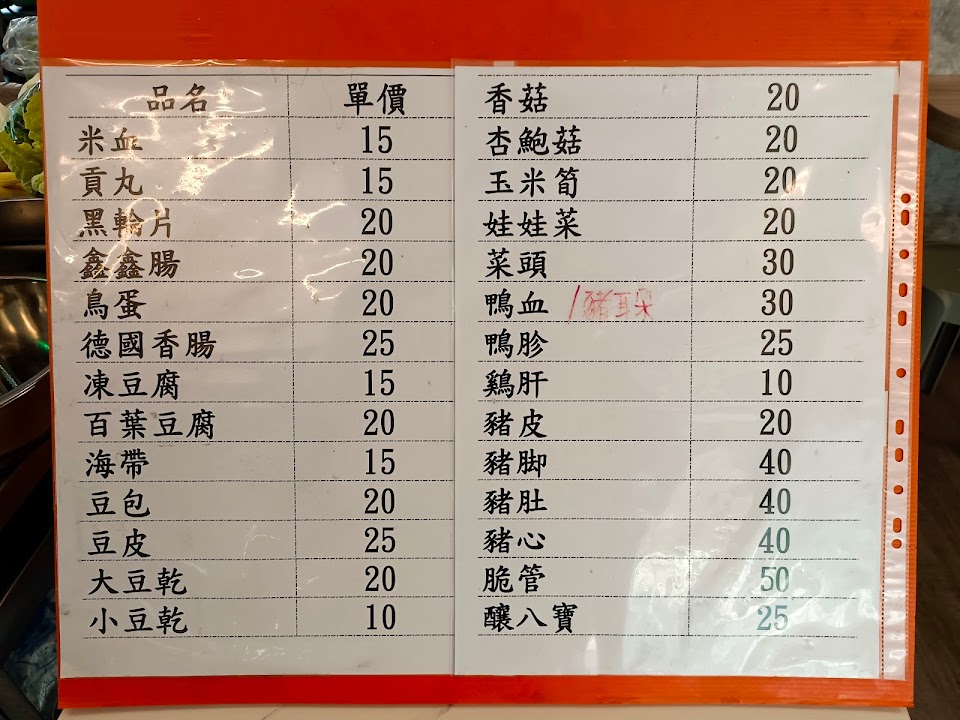 品名 單價
米血 15
貢丸 15
黑輪片 20
鑫鑫腸 20
鳥蛋 20
德國香腸 25
凍豆腐 15
百葉豆腐 20
海帶 15
豆包 20
豆皮 25
大豆乾 20
小豆乾 10
香菇 20
杏鮑菇 20
玉米筍 20
娃娃菜 20
菜頭 30
鴨血 /豬耳朵 30
鴨胗 25
鷄肝 10
豬皮 20
豬脚 40
豬肚 40
豬心 40
脆管 50
釀八寶 25